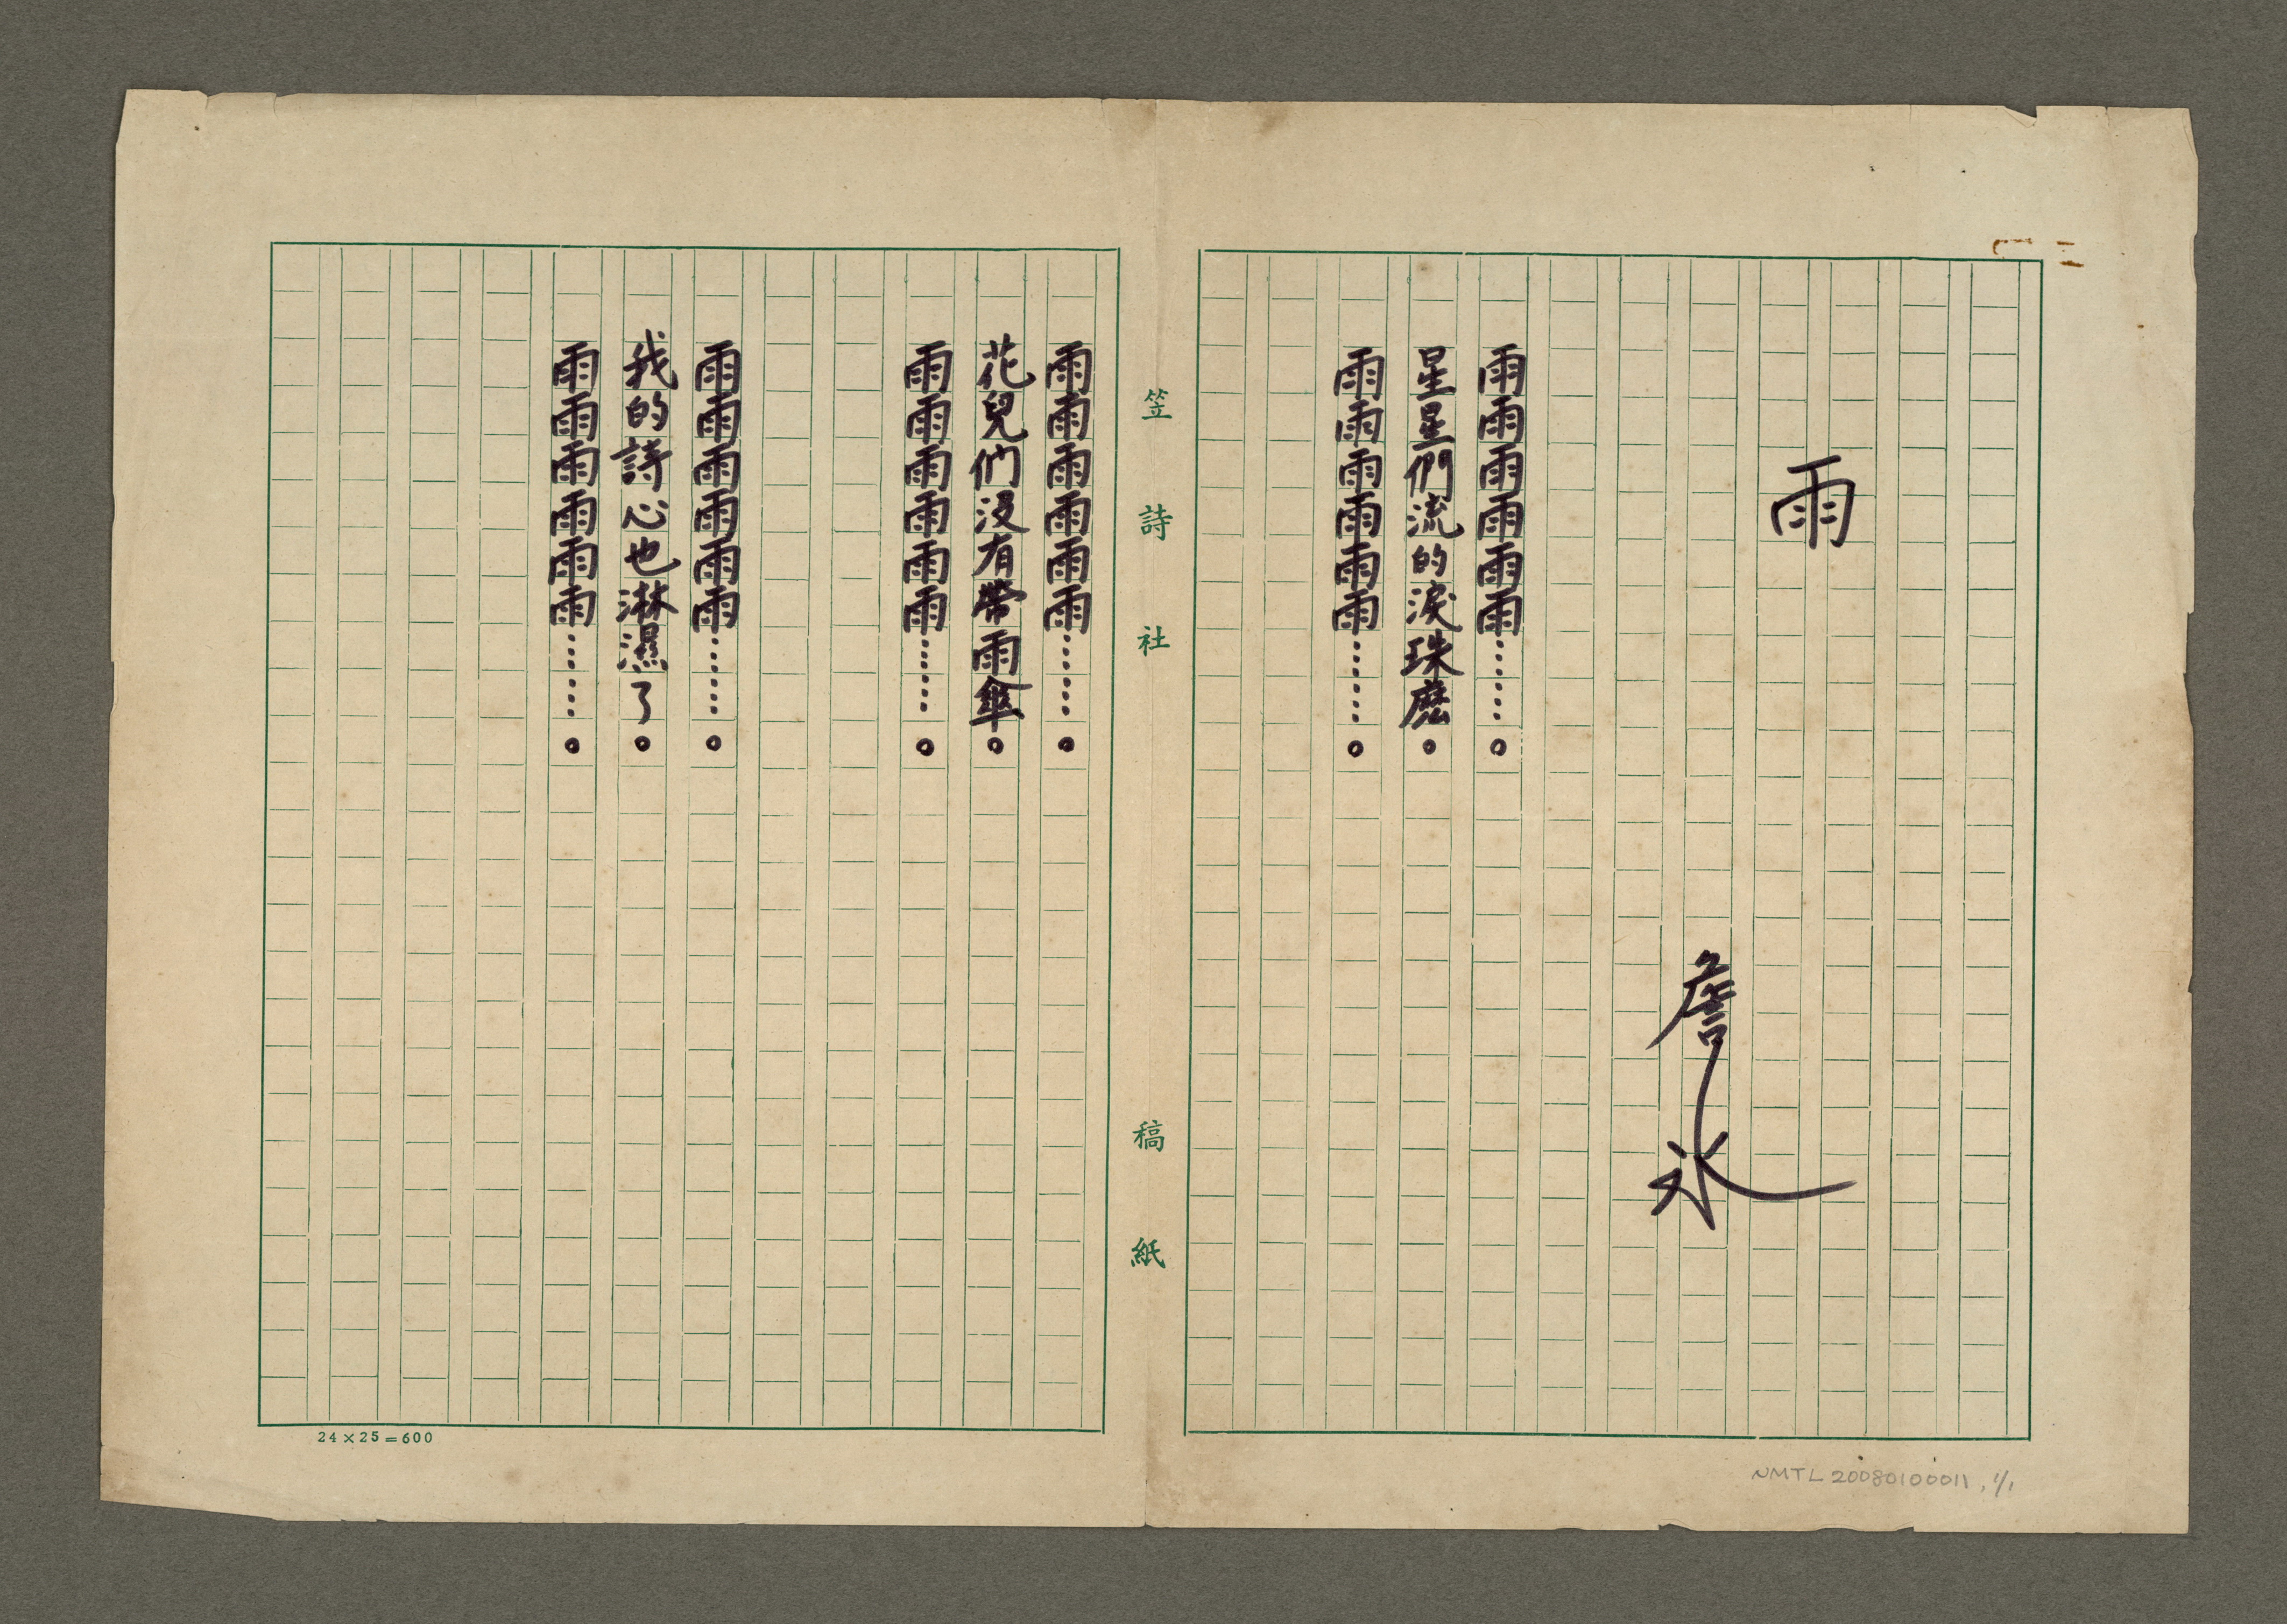 雨
詹冰
雨雨雨雨雨雨……。
星星們流的淚珠麼。
雨雨雨雨雨雨……。
笠詩社 稿紙
雨雨雨雨雨雨……。
花兒们沒有帶雨傘。
雨雨雨雨雨雨……。
雨雨雨雨雨雨……。
我的詩心也淋濕了。
雨雨雨雨雨雨……。
24×25=600
NMTL 20080100011, 1/1